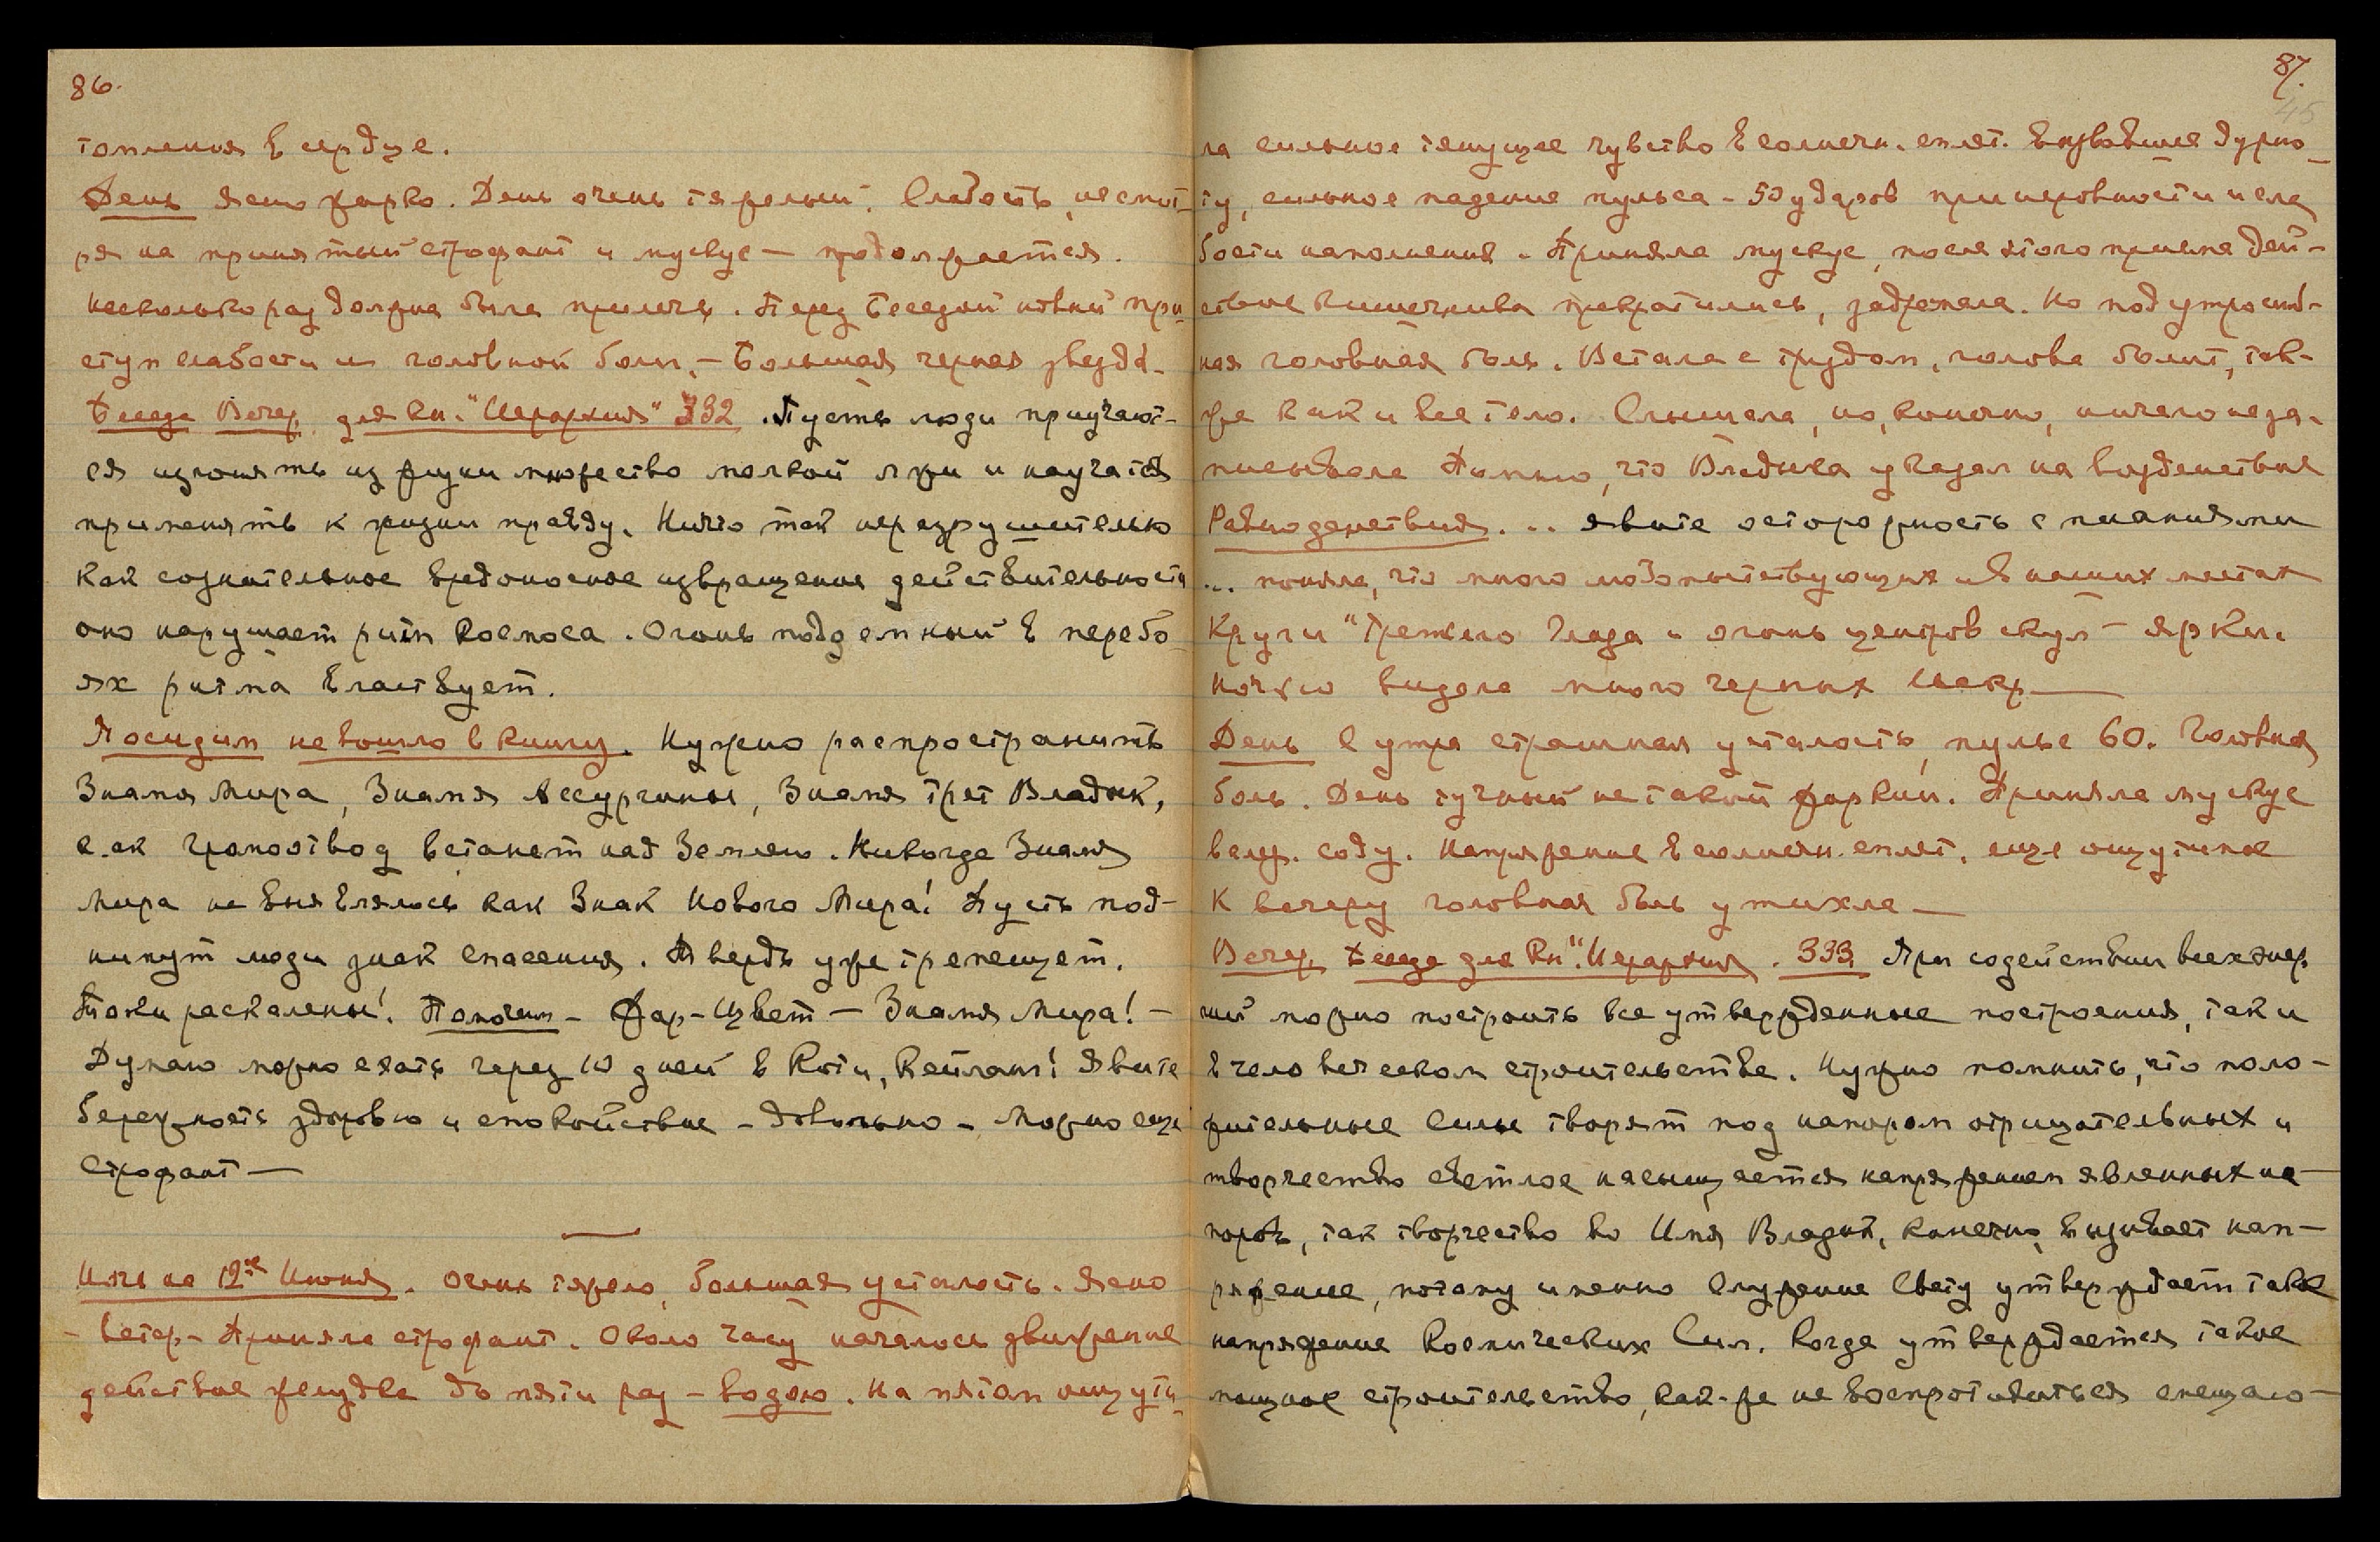 86.
томления в сердце.
День ясно жарко. День очень тяжелый. Слабость, несмот-
ря на принятый строфант и мускус — продолжается.
Несколько раз должна была прилечь. Перед Беседой новый при-
ступ слабости и головной боли, — Большая черная звезда.
Беседа Вечер для кн. "Иерархия" 332. Пусть люди приучают-
ся изгонять из жизни множество мелкой лжи и научатся
применять к жизни правду. Ничто так не разрушительно
как сознательное вредоносное извращение действительности
оно нарушает ритм Космоса. Огонь подземный в перебо-
ях ритма властвует.
Посидим не вошло в книгу. Нужно распространить
Знамя Мира, Знамя Армагеддона, Знамя трех Владык,
как громоотвод встанет над Землею. Никогда Знамя
Мира не выявлялось как Знак Нового Мира! Пусть под-
нимут люди знак спасения. Твердь уже трепещет.
Токи раскалены! Помолчим — Жар-Цвет — Знамя Мира! —
Думаю можно ехать через 10 дней в Коти, Кейланг! Явите
бережность здоровью и спокойствие — Довольно — Можно еще
Строфант —
Ночь на 12ое Июня. Очень тяжело, большая усталость. Ясно
— ветер — Приняла строфант. Около часу началось движение
действие желудка до пяти раз — водою. На пятом ощути-
87.
45
ла сильное тянущее чувство в солнечн. сплет. вызвавшее дурно-
ту, сильное падение пульса — 50 ударов при неровности и сла
бости наполнения. Приняла мускус, после этого приема дей-
ствие кишечника прекратилось, задремала. Но под утро силь-
ная головная боль. Встала с трудом, голова болит, так-
же как и все тело. Слышала, но, конечно, ничего не за-
писывала Помню, что Владыка указал на воздействия
Равноденствия. .. явите осторожность с писаниями
... поняла, что много любопытствующих и в наших местах
Круги "Третьего Глаза и огонь центров скул — ярки.
Ночью видела много черных Искр —
День С утра страшная усталость, пульс 60. Головная
боль. День тучный не такой жаркий. Приняла мускус
валер. соду. Напряжение в солнечн. сплет. еще ощутимое
К вечеру головная боль утихла —
Вечер, Беседа для Кн. "Иерархия". 333. При содействии всех энер
гий можно построить все утвержденные построения, так и
в человеческом строительстве. Нужно помнить, что поло-
жительные Силы творят под напором отрицательных и
творчество светлое насыщается напряжением явленных на-
поров, так творчество во Имя Владык, конечно, вызывает нап-
ряжение, потому именно Служение Свету утверждает такое
напряжение Космических Сил. Когда утверждается такое
мощное строительство, как-же не воспротивиться спешаю-